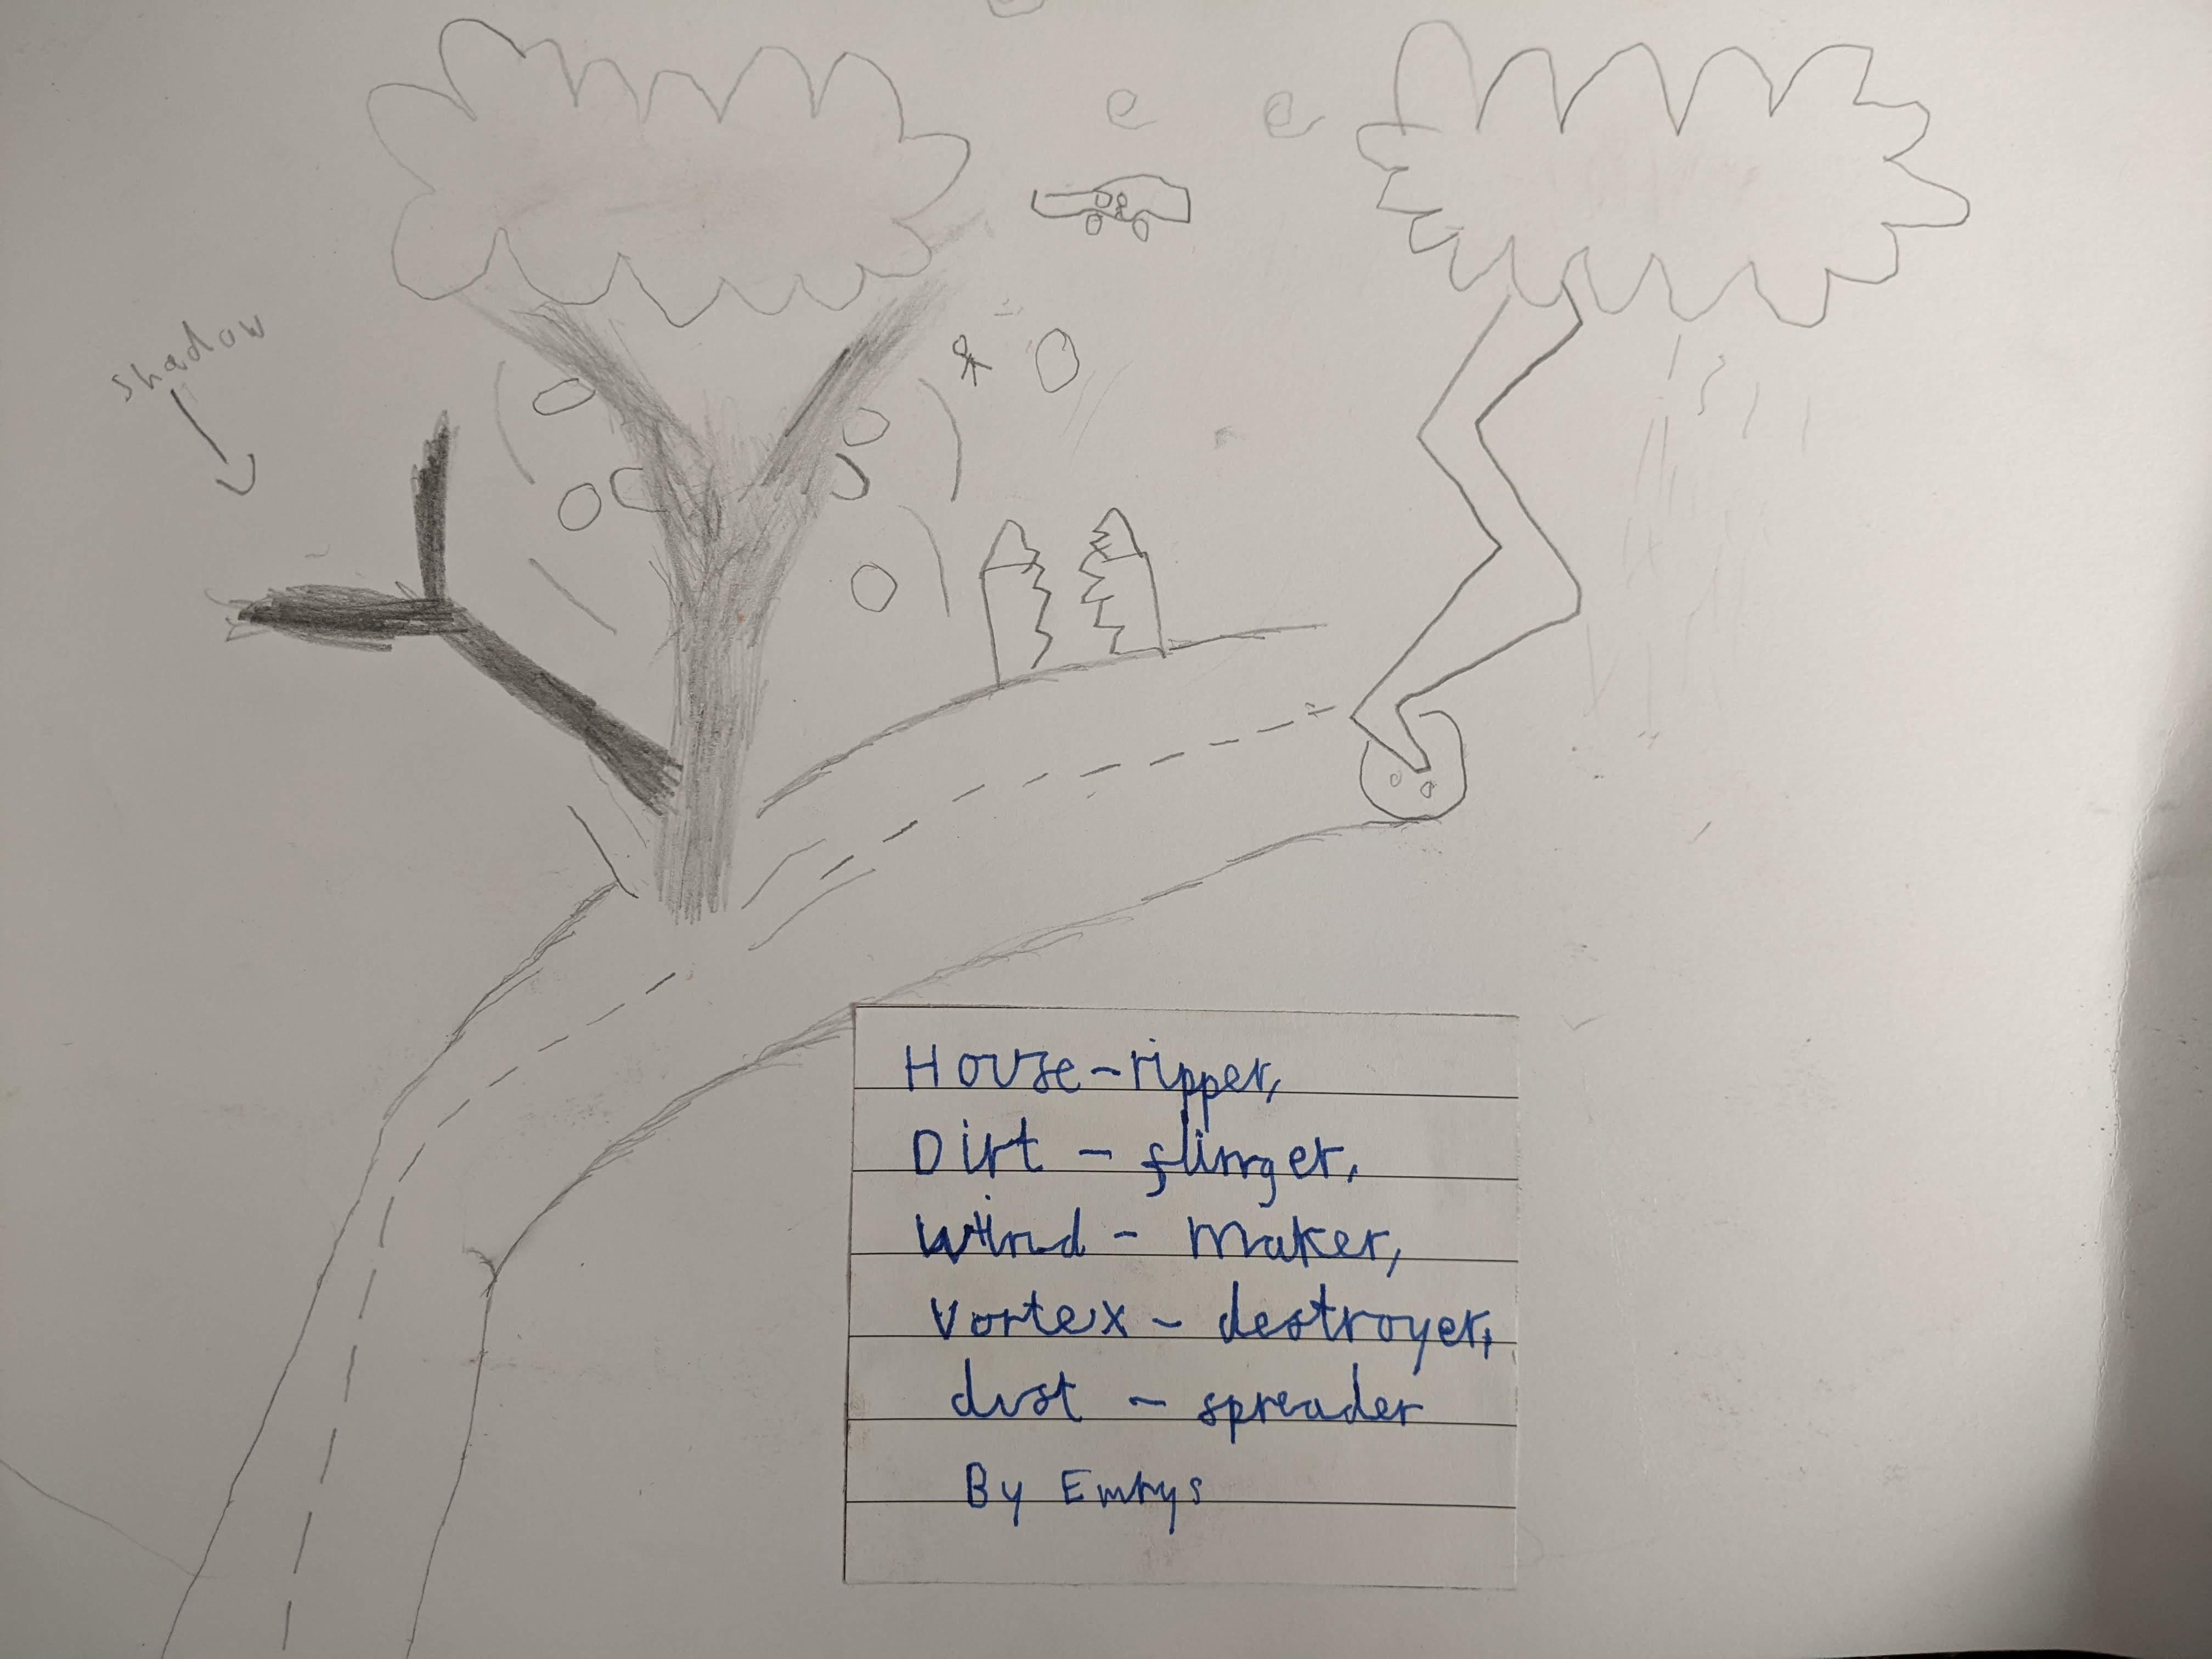 shadow
House-ripper,
Dirt - flinger,
Wind - maker,
Vortex - destroyer,
dust - spreader
By Emrys